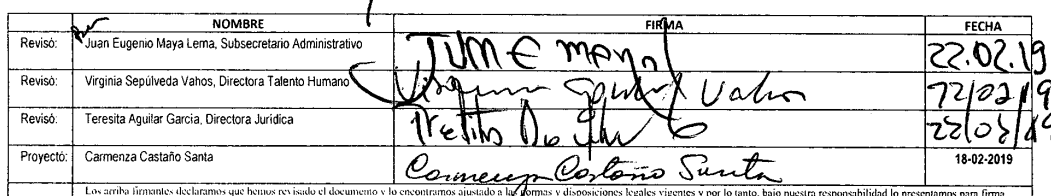 NOMBRE FIRMA FECHA
Revisó: Juan Eugenio Maya Lema, Subsecretario Administrativo 22.02.19
Revisó: Virginia Sepúlveda Vahos, Directora Talento Humano Virginia Sepúlveda Vahos
Revisó: Teresita Aguilar Garcia, Directora Jurídica
Proyectó: Carmenza Castaño Santa Carmenza Castaño Santa 18-02-2019
Los arriba firmantes declaramos que hemos revisado el documento y lo encontramos ajustado a las normas y disposiciones legales vigentes y por lo tanto, bajo nuestra responsabilidad lo presentamos para firma